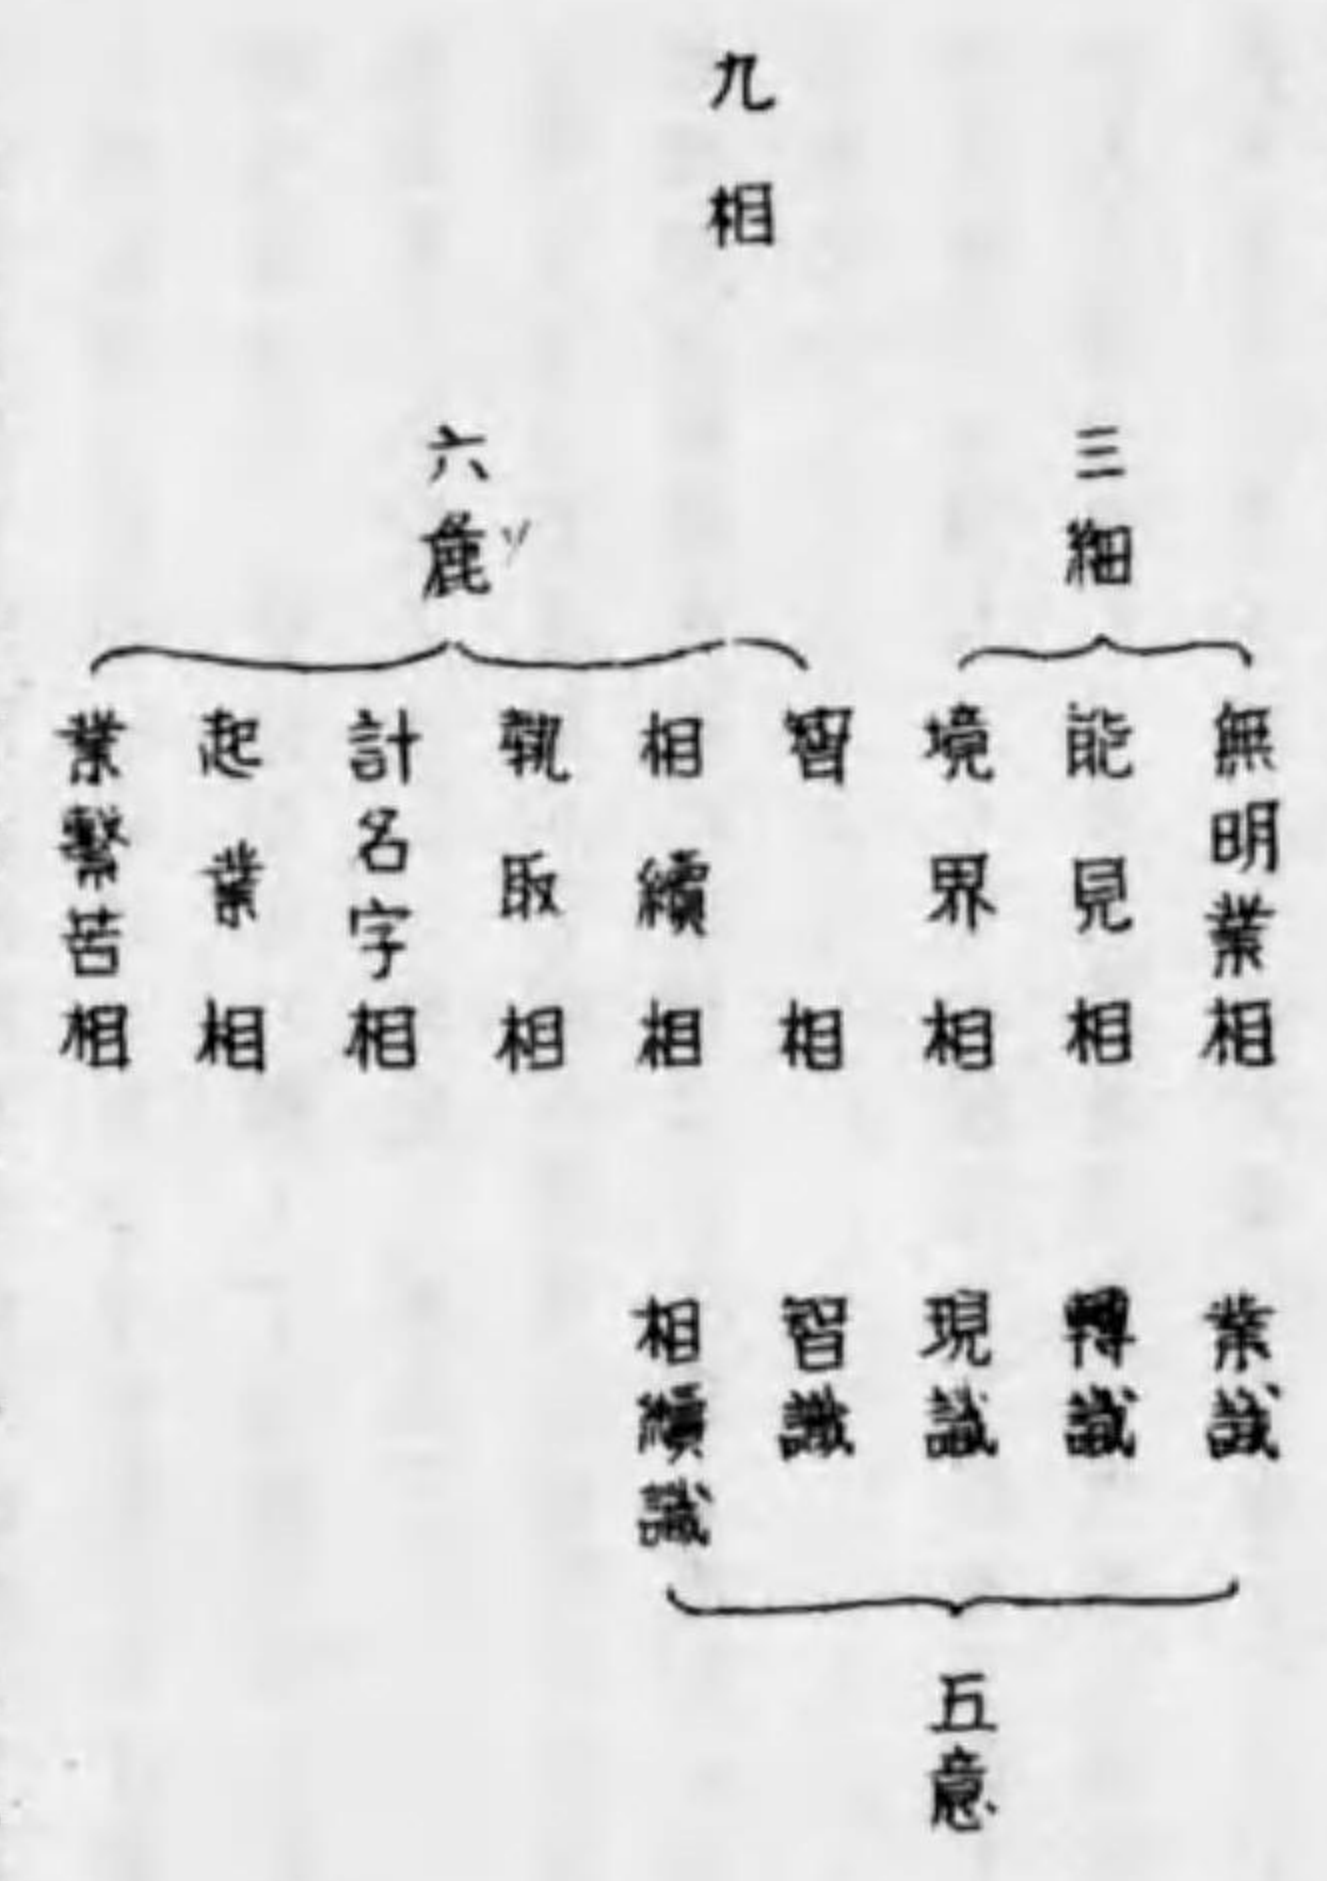 九相
三細
六麁ソ
無明業相
能見相
境界相
智相
相續相
執取相
計名字相
起業相
業繫苦相
業識
轉識
現識
智識
相續識
五意